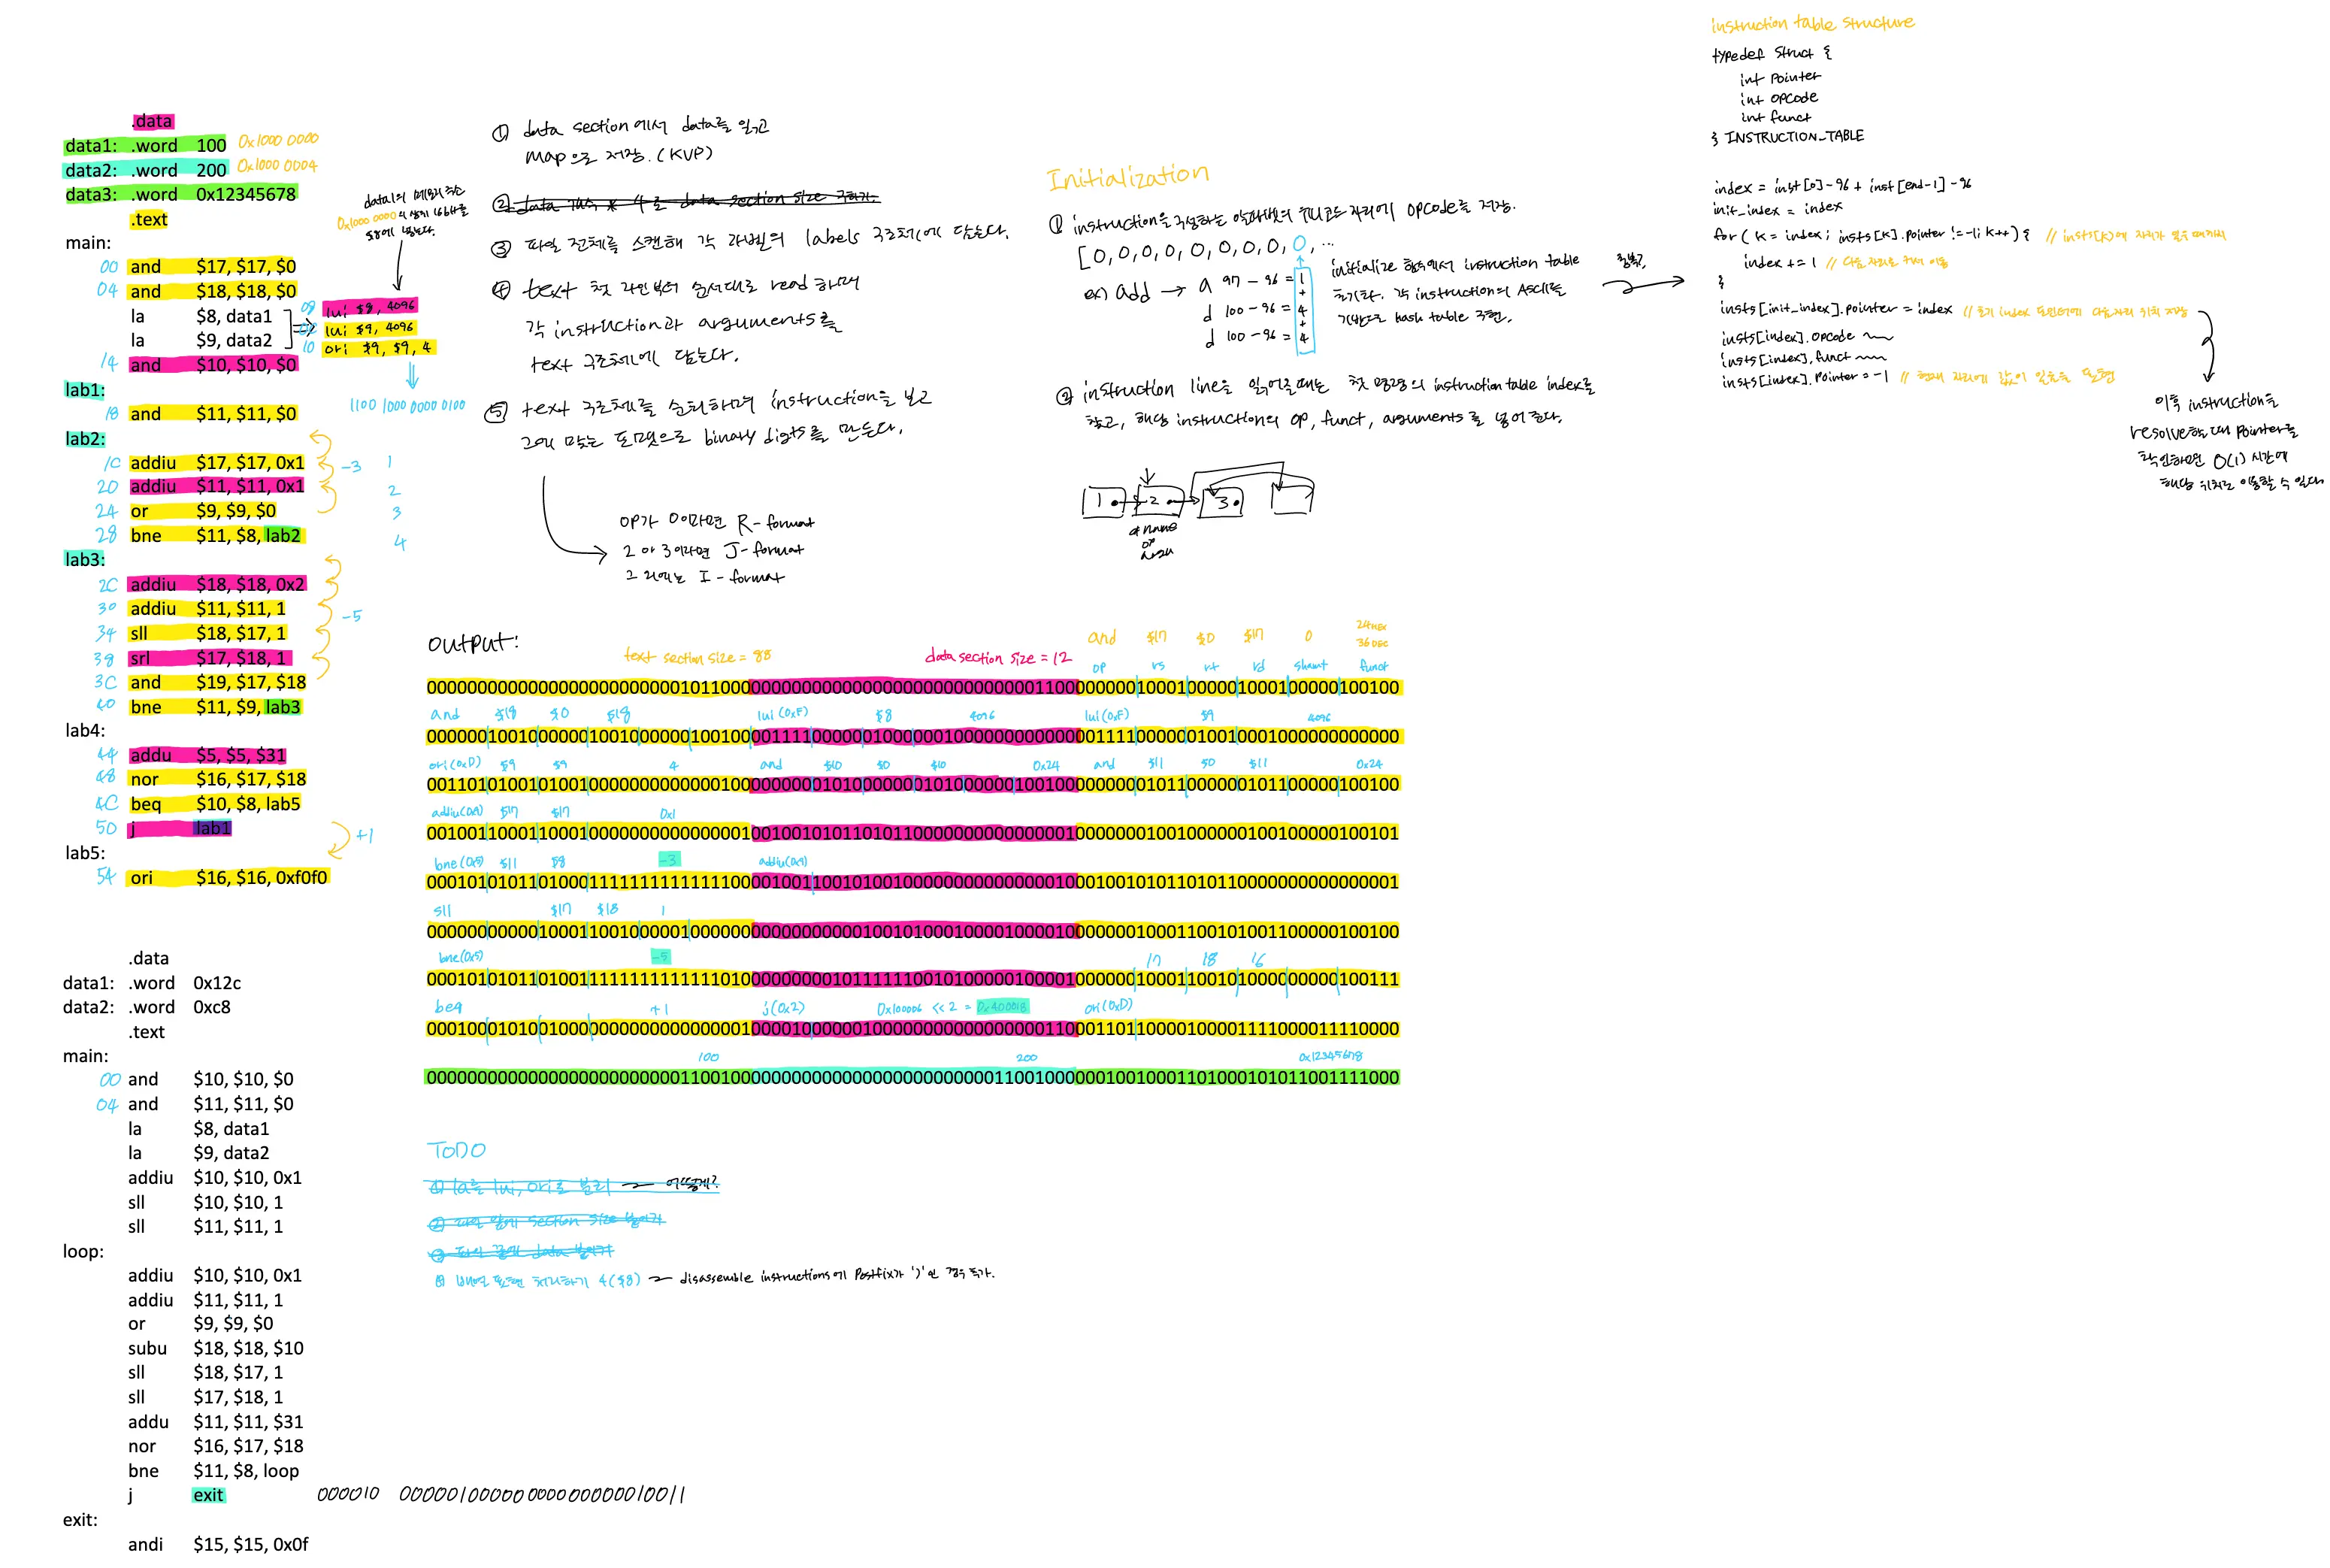 .data
data1: .word 100 0x1000 0000
data2: .word 200 0x1000 0004
data3: .word 0x12345678
.text
main:
00 and $17, $17, $0
04 and $18, $18, $0
la $8, data1
la $9, data2
14 and $10, $10, $0
lab1:
18 and $11, $11, $0
lab2:
1C addiu $17, $17, 0x1
20 addiu $11, $11, 0x1
24 or $9, $9, $0
28 bne $11, $8, lab2
lab3:
2C addiu $18, $18, 0x2
30 addiu $11, $11, 1
34 sll $18, $17, 1
38 srl $17, $18, 1
3C and $19, $17, $18
40 bne $11, $9, lab3
lab4:
44 addu $5, $5, $31
48 nor $16, $17, $18
4C beq $10, $8, lab5
50 j lab1
lab5:
54 ori $16, $16, 0xf0f0
-3
-5
+1
1
2
3
4
data1의 메모리 주소
0x1000 0000의 상위 16bit를
$8에 넣는다.
08 lui $8, 4096
0C lui $9, 4096
10 ori $9, $9, 4
1100 1000 0000 0100
.data
data1: .word 0x12c
data2: .word 0xc8
.text
main:
00 and $10, $10, $0
04 and $11, $11, $0
la $8, data1
la $9, data2
addiu $10, $10, 0x1
sll $10, $10, 1
sll $11, $11, 1
loop:
addiu $10, $10, 0x1
addiu $11, $11, 1
or $9, $9, $0
subu $18, $18, $10
sll $18, $17, 1
sll $17, $18, 1
addu $11, $11, $31
nor $16, $17, $18
bne $11, $8, loop
j exit 000010 00000100000000000000010011
exit:
andi $15, $15, 0x0f
① data section에서 data를 읽고
map으로 저장. (KVP)
② data 개수 * 4로 data section size 구하기.
③ 파일 전체를 스캔해 각 라벨의 labels 구조체에 담는다.
④ text 첫 라인부터 순서대로 read 하며
각 instruction과 arguments를
text 구조체에 담는다.
⑤ text 구조체를 순회하며 instruction을 보고
그에 맞는 포맷으로 binary digits를 만든다.
op가 0이라면 R-format
2 or 3이라면 J-format
그 외에는 I-format
Initialization
① instruction을 구성하는 알파벳의 유니코드 자리에 opcode를 저장.
[0,0,0,0,0,0,0,0,0,...
ex) add → a 97 - 96 = 1
+
d 100 - 96 = 4
+
d 100 - 96 = 4
initialize 함수에서 instruction table
초기화. 각 instruction의 ASCII를
기반으로 hash table 구현.
② instruction line을 읽어올때는 첫 명령의 instruction table index를
찾고, 해당 instruction의 op, funct, arguments를 넣어준다.
1 2 3
name
op
instruction table structure
typedef struct {
int pointer
int opcode
int funct
} INSTRUCTION_TABLE
index = inst[0]-96 + inst[end-1]-96
init_index = index
for ( k = index; insts[k].pointer != -1; k++) { // insts[k]에 자리가 있을 때까지
index += 1 // 다음 자리로 이동
}
insts[init_index].pointer = index // 초기 index 포인터에 다음자리 위치 저장
insts[index].opcode
insts[index].funct
insts[index].pointer = -1 // 현재 자리에 값이 있음을 표현
이후 instruction을
resolve할 때 pointer를
확인하면 O(1) 시간에
해당 위치로 이동할 수 있다.
output:
text section size = 88 data section size = 12
and $17 $0 $17 0 24 HEX
36 DEC
op rs rt rd shamt funct
000000000000000000000000010110000000000000000000000000000000110000000010001000001000100000100100
and $18 $0 $18 lui (0xF) $8 4096 lui (0xF) $9 4096
000000100100000010010000001001000011110000001000000100000000000000111100000010010001000000000000
ori (0xD) $9 $9 4 and $10 $0 $10 0x24 and $11 $0 $11 0x24
001101010010100100000000000001000000000101000000101000000010010000000001011000000101100000100100
addiu (0x9) $17 $17 0x1
001001100011000100000000000000010010010101101011000000000000000100000001001000000100100000100101
bne (0x5) $11 $8 -3 addiu (0x9)
000101010110100011111111111111000010011001010010000000000000001000100101011010110000000000000001
sll $17 $18 1
000000000001000110010000010000000000000000010010100010000100001000000010001100101001100000100100
bne (0x5) -5 17 18 16
000101010110100111111111111110100000000010111111001010000010000100000010001100101000000000100111
beq +1 j (0x2) 0x100006 << 2 = 0x400018 ori (0xD)
000100010100100000000000000000010000100000010000000000000000011000110110000100001111000011110000
100 200 0x12345678
000000000000000000000000011001000000000000000000000000001100100000010010001101000101011001111000
TODO
① la를 lui, ori로 분리 → 어떻게?
② 파일 앞에 section size 붙이기
③ 파일 끝에 data 붙이기
④ 배열 표현 처리하기 4($8) → disassemble instructions에 postfix가 ')'인 경우 추가.